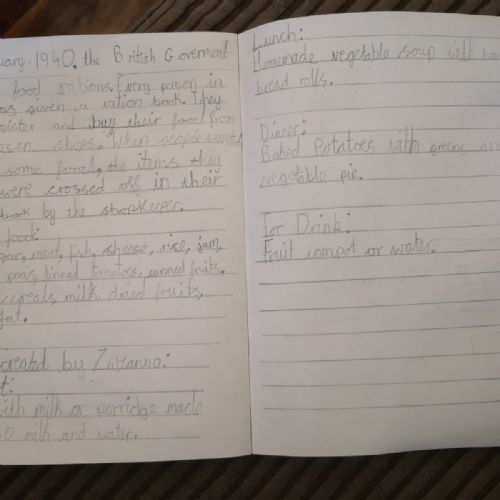 uary 1940, the British Government
food rations. Every person in
as given a ration book. They
gister and buy their food from
osen shops. When people wanted
some food, the items they
were crossed off in their
book by the shopkeeper.
food:
gar, meat, fish, cheese, rice, jam,
peas, tinned tomatoes, canned fruits,
cereals, milk, dried fruits,
created by Zuzanna:
t:
with milk or porridge made
milk and water.
Lunch:
Homemade vegetable soup with
bread rolls.
Dinner:
Baked Potatoes with greens an
vegetable pie.
For Drink:
Fruit compot or water.